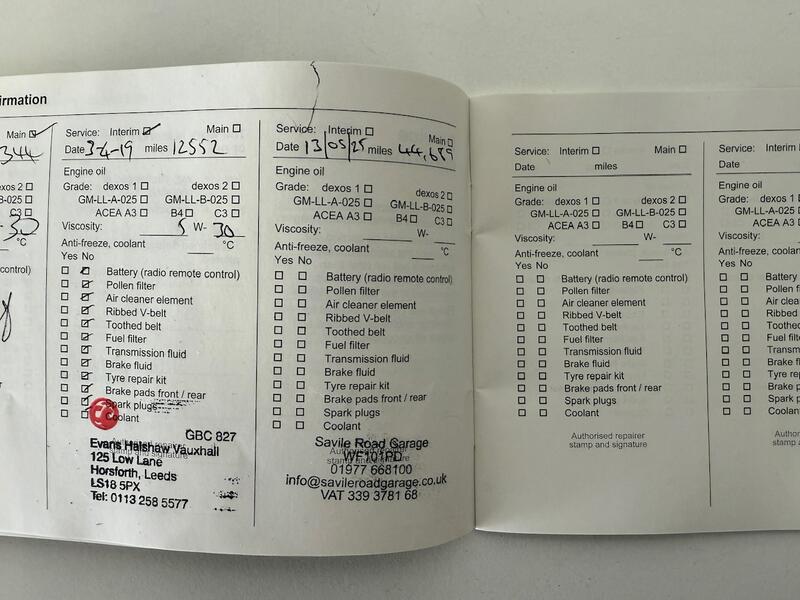 irmation
Main
344
dexos 2
B-025
C3
30
°C
control)
Service: Interim Main
Date 3-4-19 miles 12552
Engine oil
Grade: dexos 1 dexos 2
GM-LL-A-025 GM-LL-B-025
ACEA A3 B4 C3
Viscosity: 5 W- 30
Anti-freeze, coolant °C
Yes No
Battery (radio remote control)
Pollen filter
Air cleaner element
Ribbed V-belt
Toothed belt
Fuel filter
Transmission fluid
Brake fluid
Tyre repair kit
Brake pads front / rear
Spark plugs
Coolant
GBC 827
Authorised repairer
stamp and signature
Evans Halshaw Vauxhall
125 Low Lane
Horsforth, Leeds
LS18 5PX
Tel: 0113 258 5577
Service: Interim Main
Date 13/05/25 miles 44,689
Engine oil
Grade: dexos 1 dexos 2
GM-LL-A-025 GM-LL-B-025
ACEA A3 B4 C3
Viscosity: W-
Anti-freeze, coolant °C
Yes No
Battery (radio remote control)
Pollen filter
Air cleaner element
Ribbed V-belt
Toothed belt
Fuel filter
Transmission fluid
Brake fluid
Tyre repair kit
Brake pads front / rear
Spark plugs
Coolant
Authorised repairer
stamp and signature
Savile Road Garage
WF101PD
01977 668100
info@savileroadgarage.co.uk
VAT 339 3781 68
Service: Interim Main
Date miles
Engine oil
Grade: dexos 1 dexos 2
GM-LL-A-025 GM-LL-B-025
ACEA A3 B4 C3
Viscosity: W-
Anti-freeze, coolant °C
Yes No
Battery (radio remote control)
Pollen filter
Air cleaner element
Ribbed V-belt
Toothed belt
Fuel filter
Transmission fluid
Brake fluid
Tyre repair kit
Brake pads front / rear
Spark plugs
Coolant
Authorised repairer
stamp and signature
Service: Interim
Date
Engine oil
Grade: dexos 1
GM-LL-A-025
ACEA A3
Viscosity:
Anti-freeze, coolant
Yes No
Battery
Pollen f
Air clea
Ribbed
Toothed
Fuel filt
Transm
Brake f
Tyre re
Brake p
Spark
Coolan
A
sta